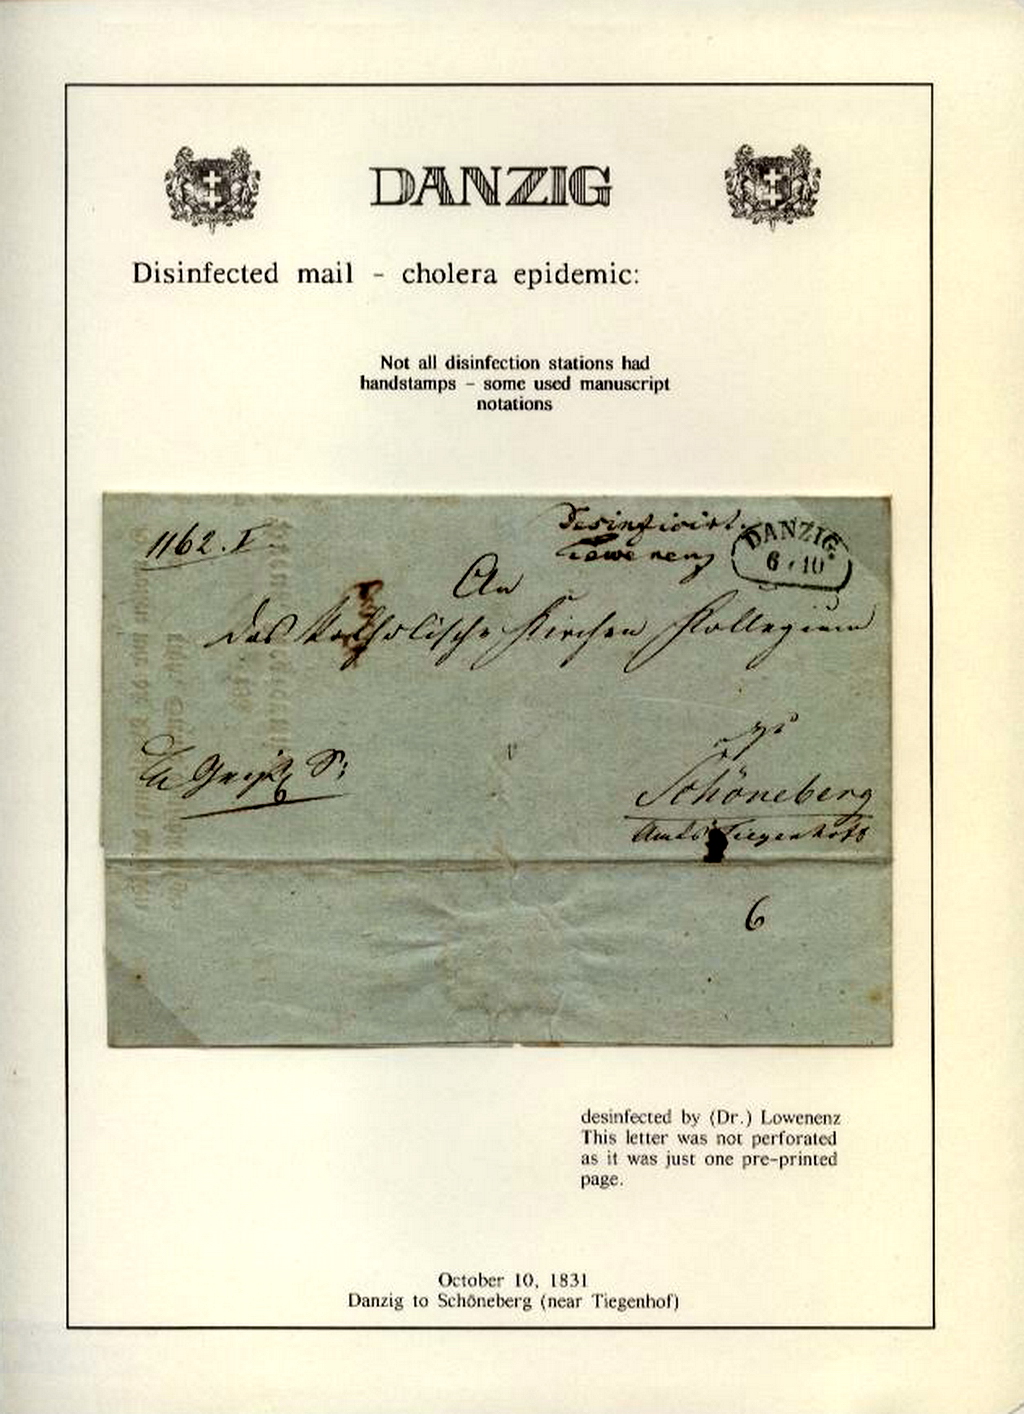 DANZIG
Disinfected mail - cholera epidemic:
Not all disinfection stations had
handstamps - some used manuscript
notations
1162. I.
Desinficirt.
Lowenenz
DANZIG.
6 · 10
An
das Katholische Kirchen Kollegium
zu
Schöneberg
Amts Tiegenhoff
6
desinfected by (Dr.) Lowenenz
This letter was not perforated
as it was just one pre-printed
page.
October 10, 1831
Danzig to Schöneberg (near Tiegenhof)